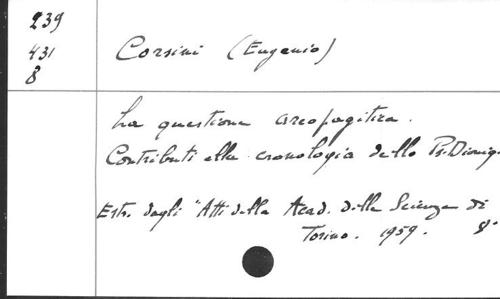 239
431
8
Corsini (Eugenio)
La questione areopagitica.
Contributi alla cronologia dello Ps. Dionig.
Estr. dagli "Atti della Acad. delle Scienze di
Torino. 1959. 8°